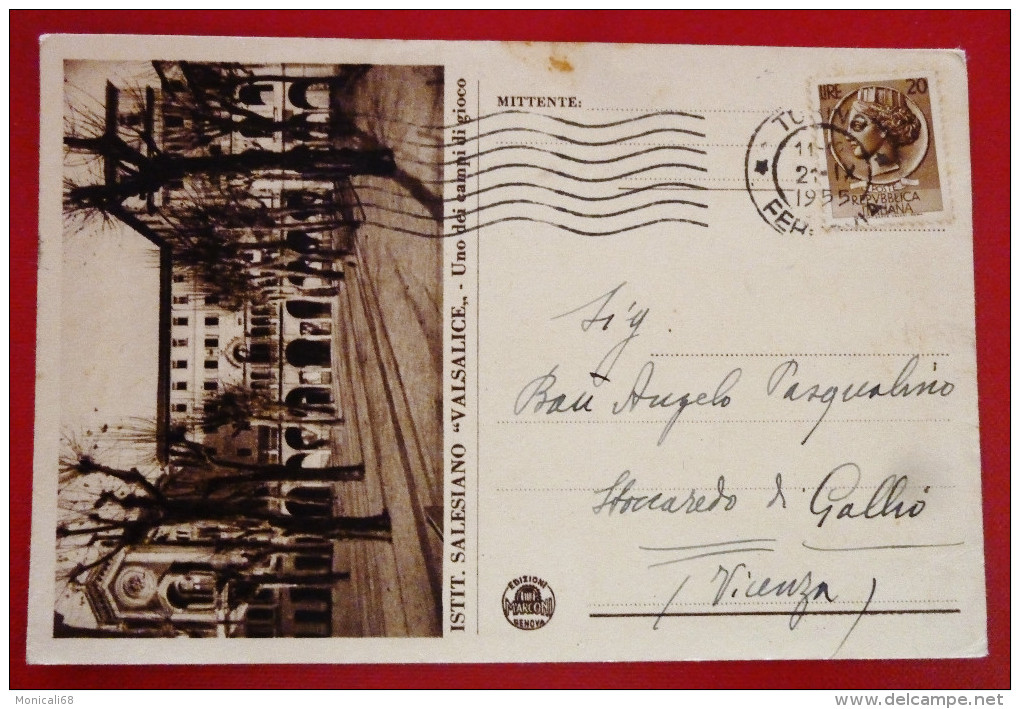 ISTIT. SALESIANO “VALSALICE„ - Uno dei campi di gioco
MITTENTE:
LIRE 20
POSTE
REPVBBLICA
ITALIANA
21-IX
1955
Sig.
Baù Angelo Pasqualino
Stoccaredo di Gallio
(Vicenza)
EDIZIONI
MARCONI
GENOVA
Monicali68
www.delcampe.net